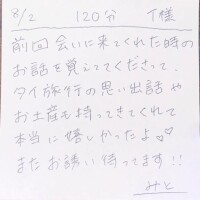 8/2 120分 T様
前回会いに来てくれた時の
お話を覚えててくださって、
タイ旅行の思い出話や
お土産も持ってきてくれて
本当に嬉しかったよ♡
またお誘い待ってます!!
みと